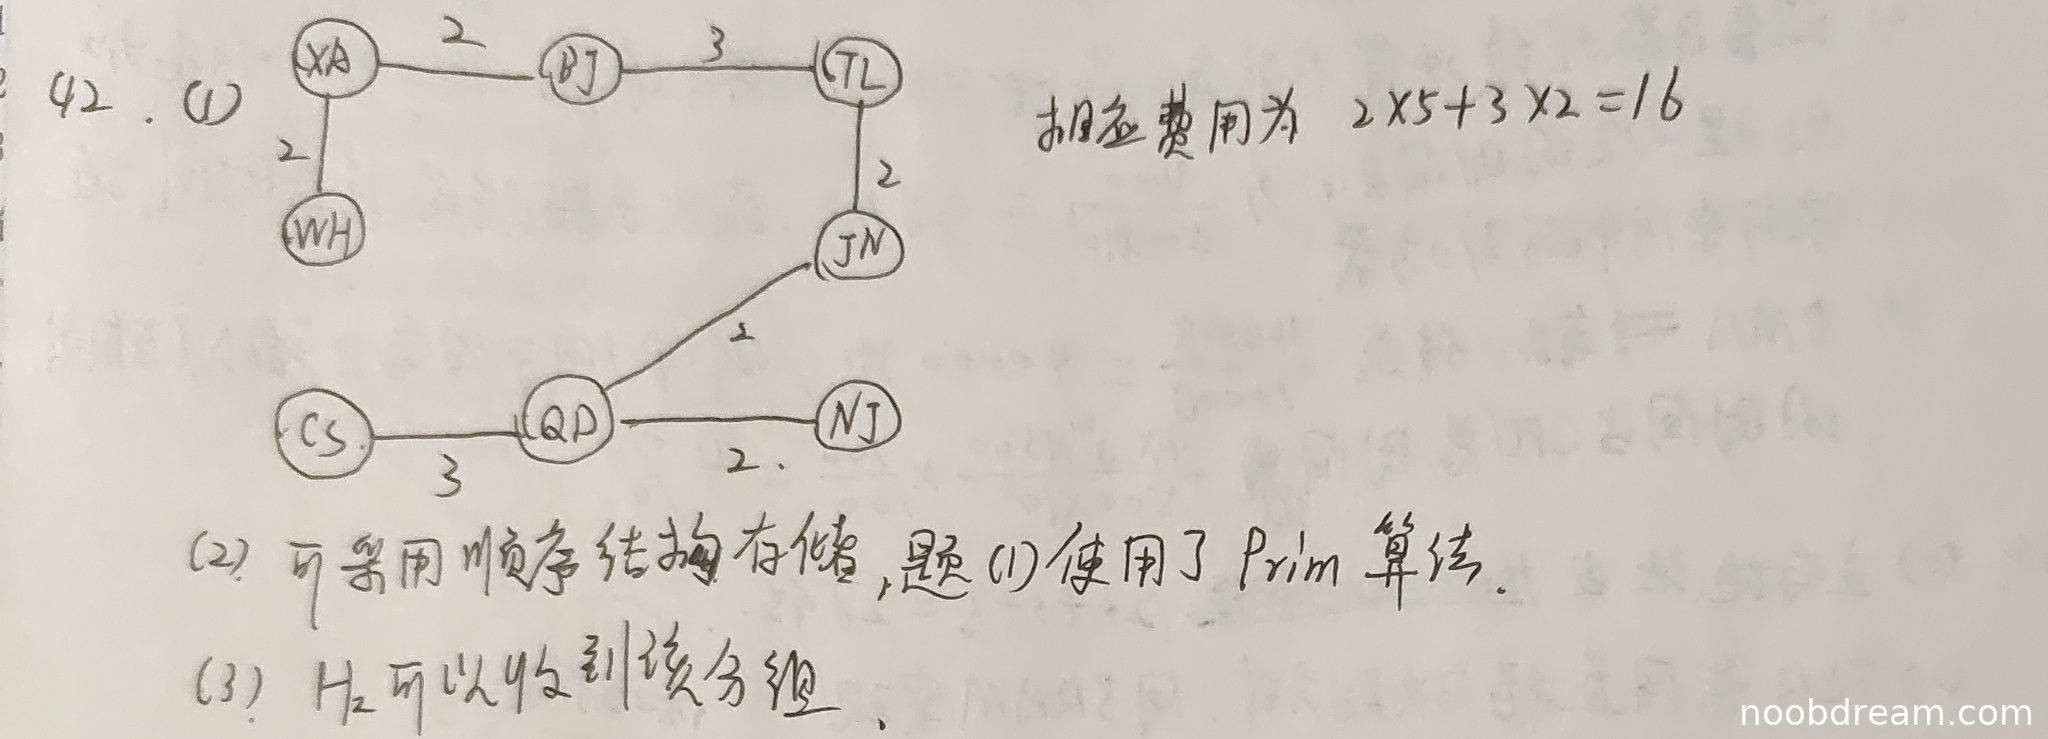 42. (1) XA 2 BJ 3 TL 相应费用为 2×5+3×2=16
2 2
WH JN
2
CS 3 QD 2. NJ
(2) 可采用顺序结构存储,题(1)使用了 Prim 算法.
(3) H₂可以收到该分组.
noobdream.com